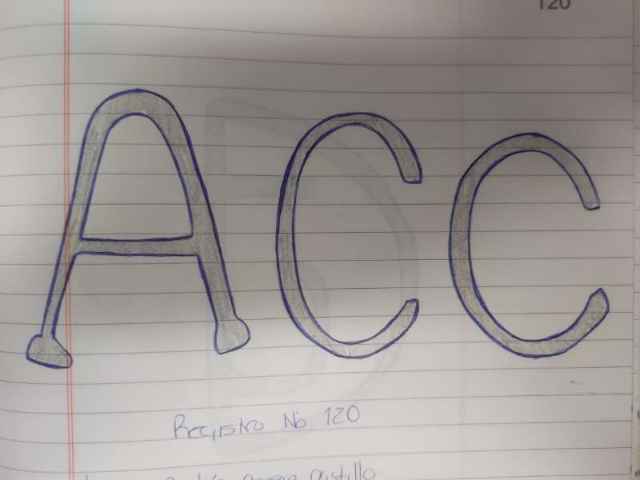 120
ACC
Registro No 120
castillo